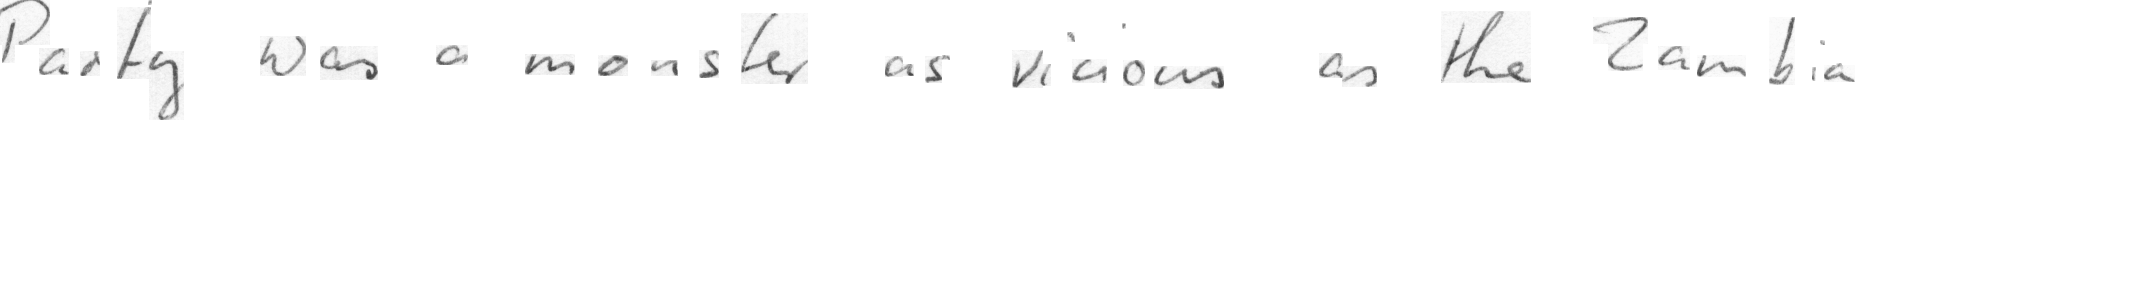 Party was a monster as vicious as the Zambia